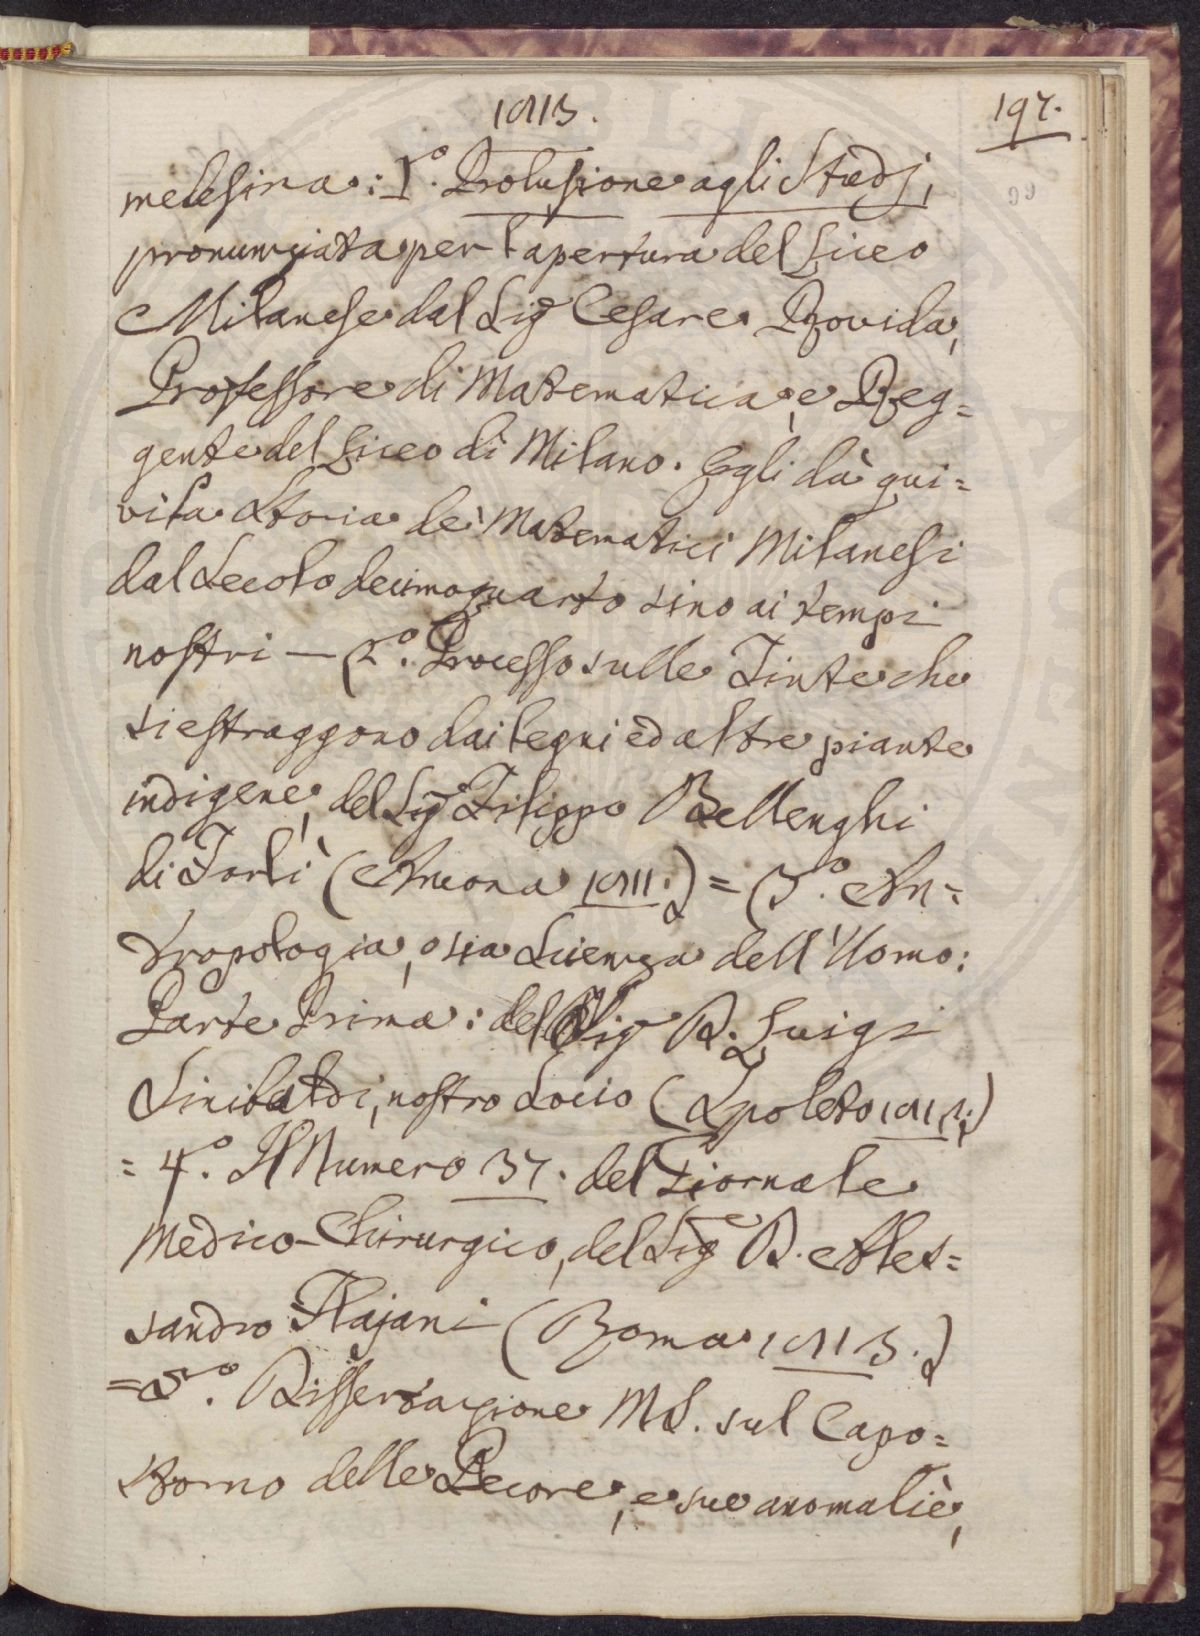 1813.
197.
medesima: 1.° Prolusione agli Studj,
pronunziata per l'apertura del Liceo
Milanese dal Sig.r Cesare Rovida,
Professore di Matematica, e Reg=
gente del Liceo di Milano. Egli dà qui=
vi la Storia de' Matematici Milanesi
dal Secolo decimoquarto sino ai tempi
nostri — 2.° Processo sulle Tinte che
si estraggono dai legni ed altre piante
indigene, del Sig.r Filippo Bellenghi
di Forlì (Ancona 1811.) = 3.° An=
tropologia, o sia Scienza dell'Uomo:
Parte Prima: del Sig.r D. Luigi
Sinibaldi, nostro Socio (Spoleto 1813.)
= 4.° Il Numero 37. del Giornale
Medico-Chirurgico, del Sig.r D. Ales=
sandro Flajani (Roma 1813.)
= 5.° Dissertazione MS. sul Capo=
storno delle Pecore, e sue anomalie,